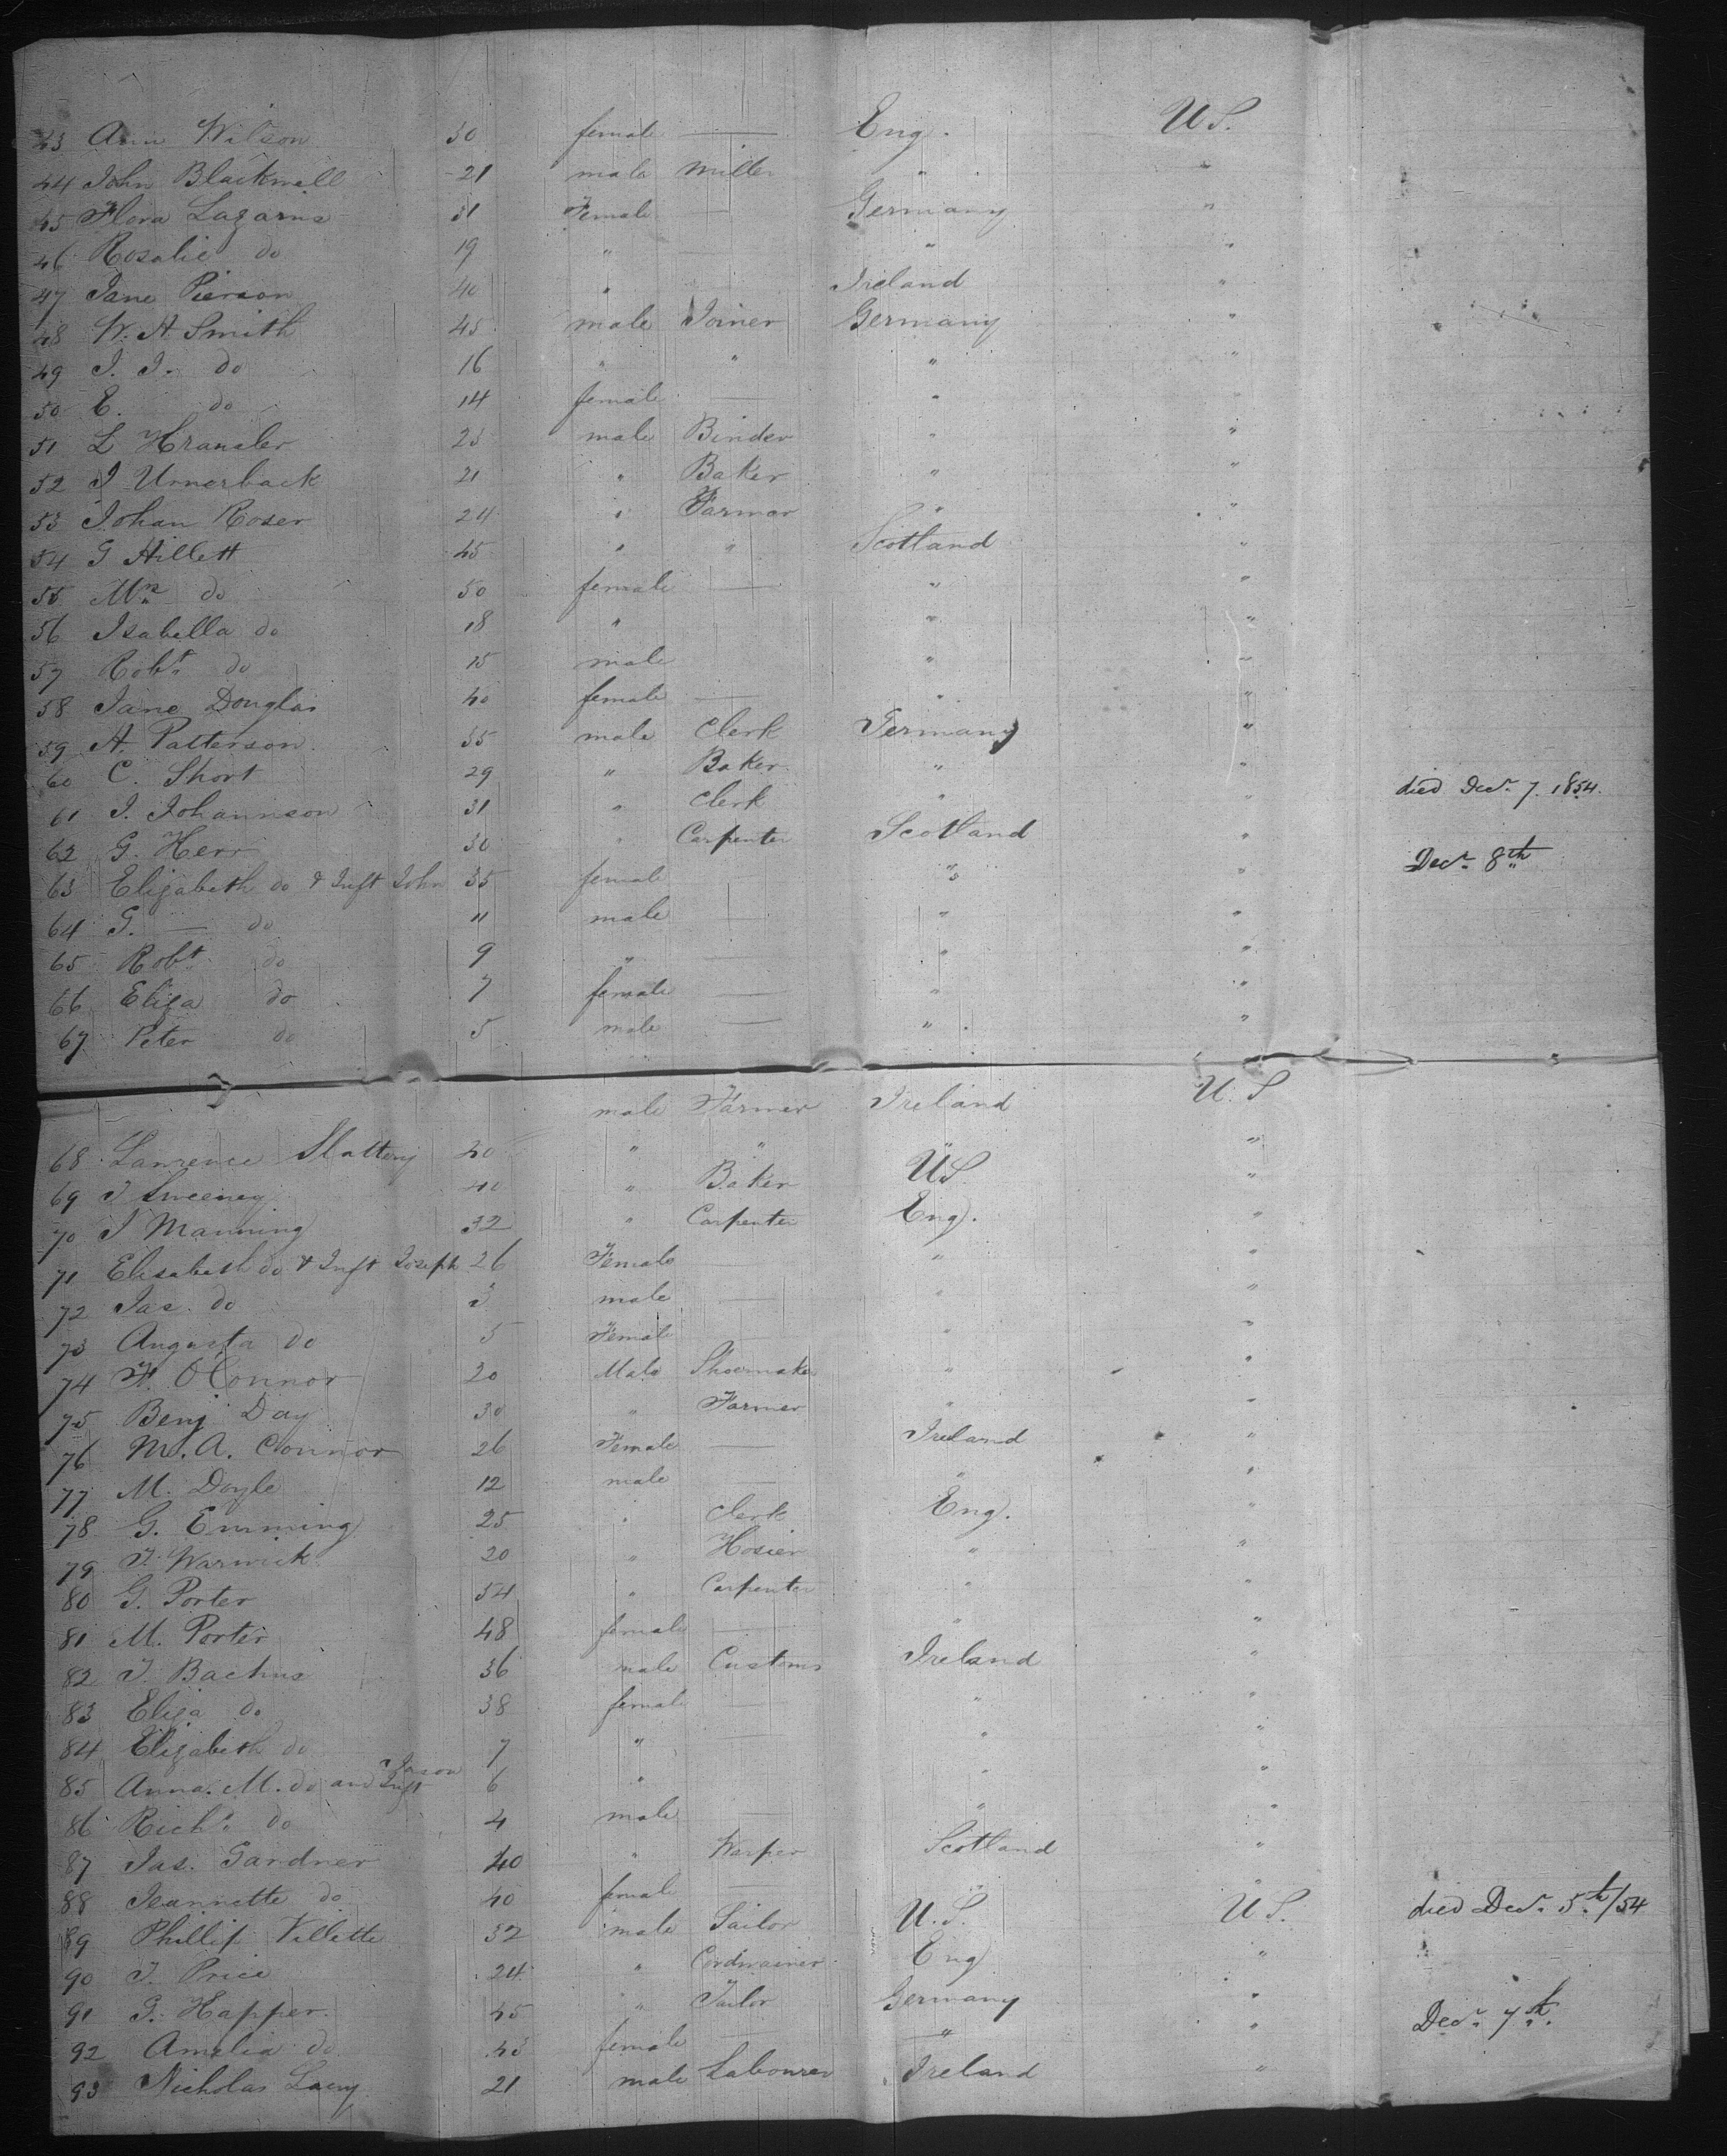 43 Ann Wilson 30 female — Eng. U S.
44 John Blackwall 21 male Miller " "
45 Flora Lazarus 31 Female — Germany "
46 Rosalie do 19 " — " "
47 Jane Pierson 40 " Ireland "
48 W. A. Smith 45 male Joiner Germany "
49 J. J. do 16 " " " "
50 E. do 14 female — " "
51 L 23 male Binder " "
52 J Urnerback 21 " Baker " "
53 Johan Roser 24 " Farmer " "
54 G Hillett 45 " " Scotland "
55 Mrs do 50 female — " "
56 Isabella do 18 " " "
57 Robt do 15 male " "
58 Jane Douglas 40 female — " "
59 A. Patterson 35 male Clerk Germany "
60 C. Short 29 " Baker " "
61 J. Johannson 31 " Clerk " " died Decr. 7. 1854.
62 G. Herr 30 " Carpenter Scotland "
63 Elizabeth do & Inft John 35 female " " Decr. 8th
64 G. — do 11 male — " "
65 Robt do 9 " — " "
66 Eliza do 7 female — " "
67 Peter do 5 male — " "
male Farmer Ireland U. S
68 Lawrence Slattery 40 " " " "
69 J Sweeney 40 " Baker U.S. "
70 J Manning 32 " Carpenter Eng. "
71 Elisabeth do & Inft Joseph 26 Female — " "
72 Jas. do 3 male — " "
73 Augusta do 5 Female " "
74 F. O'Connor 20 Male Shoemaker " "
75 Benj Day 30 " Farmer " "
76 M. A. Connor 26 Female — Ireland "
77 M. Doyle 12 male — " "
78 G. Emming 25 " Clerk Eng. "
79 J. Warwick 20 " Hosier " "
80 G. Porter 54 " Carpenter " "
81 M. Porter 48 female — " "
82 J. Bachus 36 male Customs Ireland "
83 Eliza do 38 female — " "
84 Elizabeth do 7 " — " "
85 Anna. M. do and Inft Jason 6 " " "
86 Richd. do 4 male — " "
87 Jas. Gardner 40 " Warper Scotland "
88 Jeannette do 40 female — " "
89 Phillip Villette 32 male Sailor U. S. U S. died Decr. 5th/54
90 J. Price 24 " Cordwainer Eng "
91 G. Happer 45 " Tailor Germany "
92 Amelia do 43 female — " " Decr. 7th.
93 Nicholas Lacey 21 male Labourer Ireland "